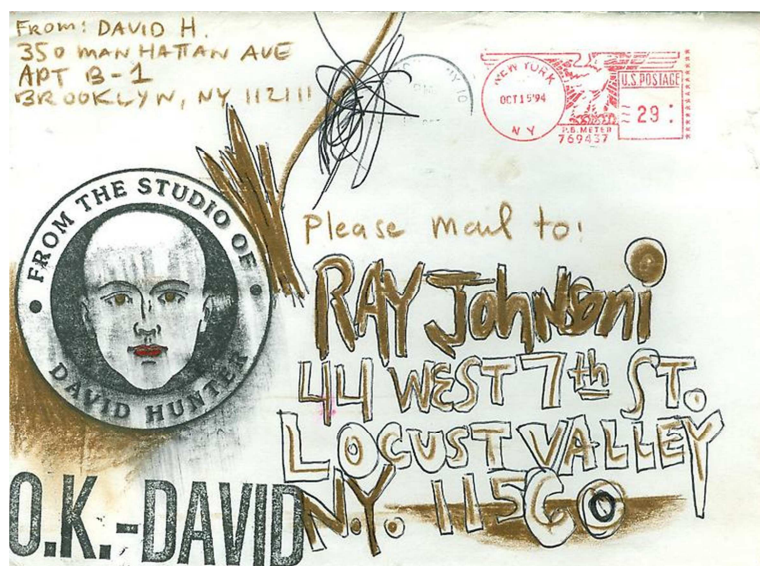 FROM: DAVID H.
350 MANHATTAN AVE
APT B-1
BROOKLYN, NY 11211
NEW YORK
OCT 15 '94
N.Y.
U.S. POSTAGE
29
P.B. METER
769437
FROM THE STUDIO OF
DAVID HUNTER
Please mail to:
RAY Johnson
44 WEST 7th ST.
LOCUST VALLEY
N.Y. 11560
O.K.-DAVID